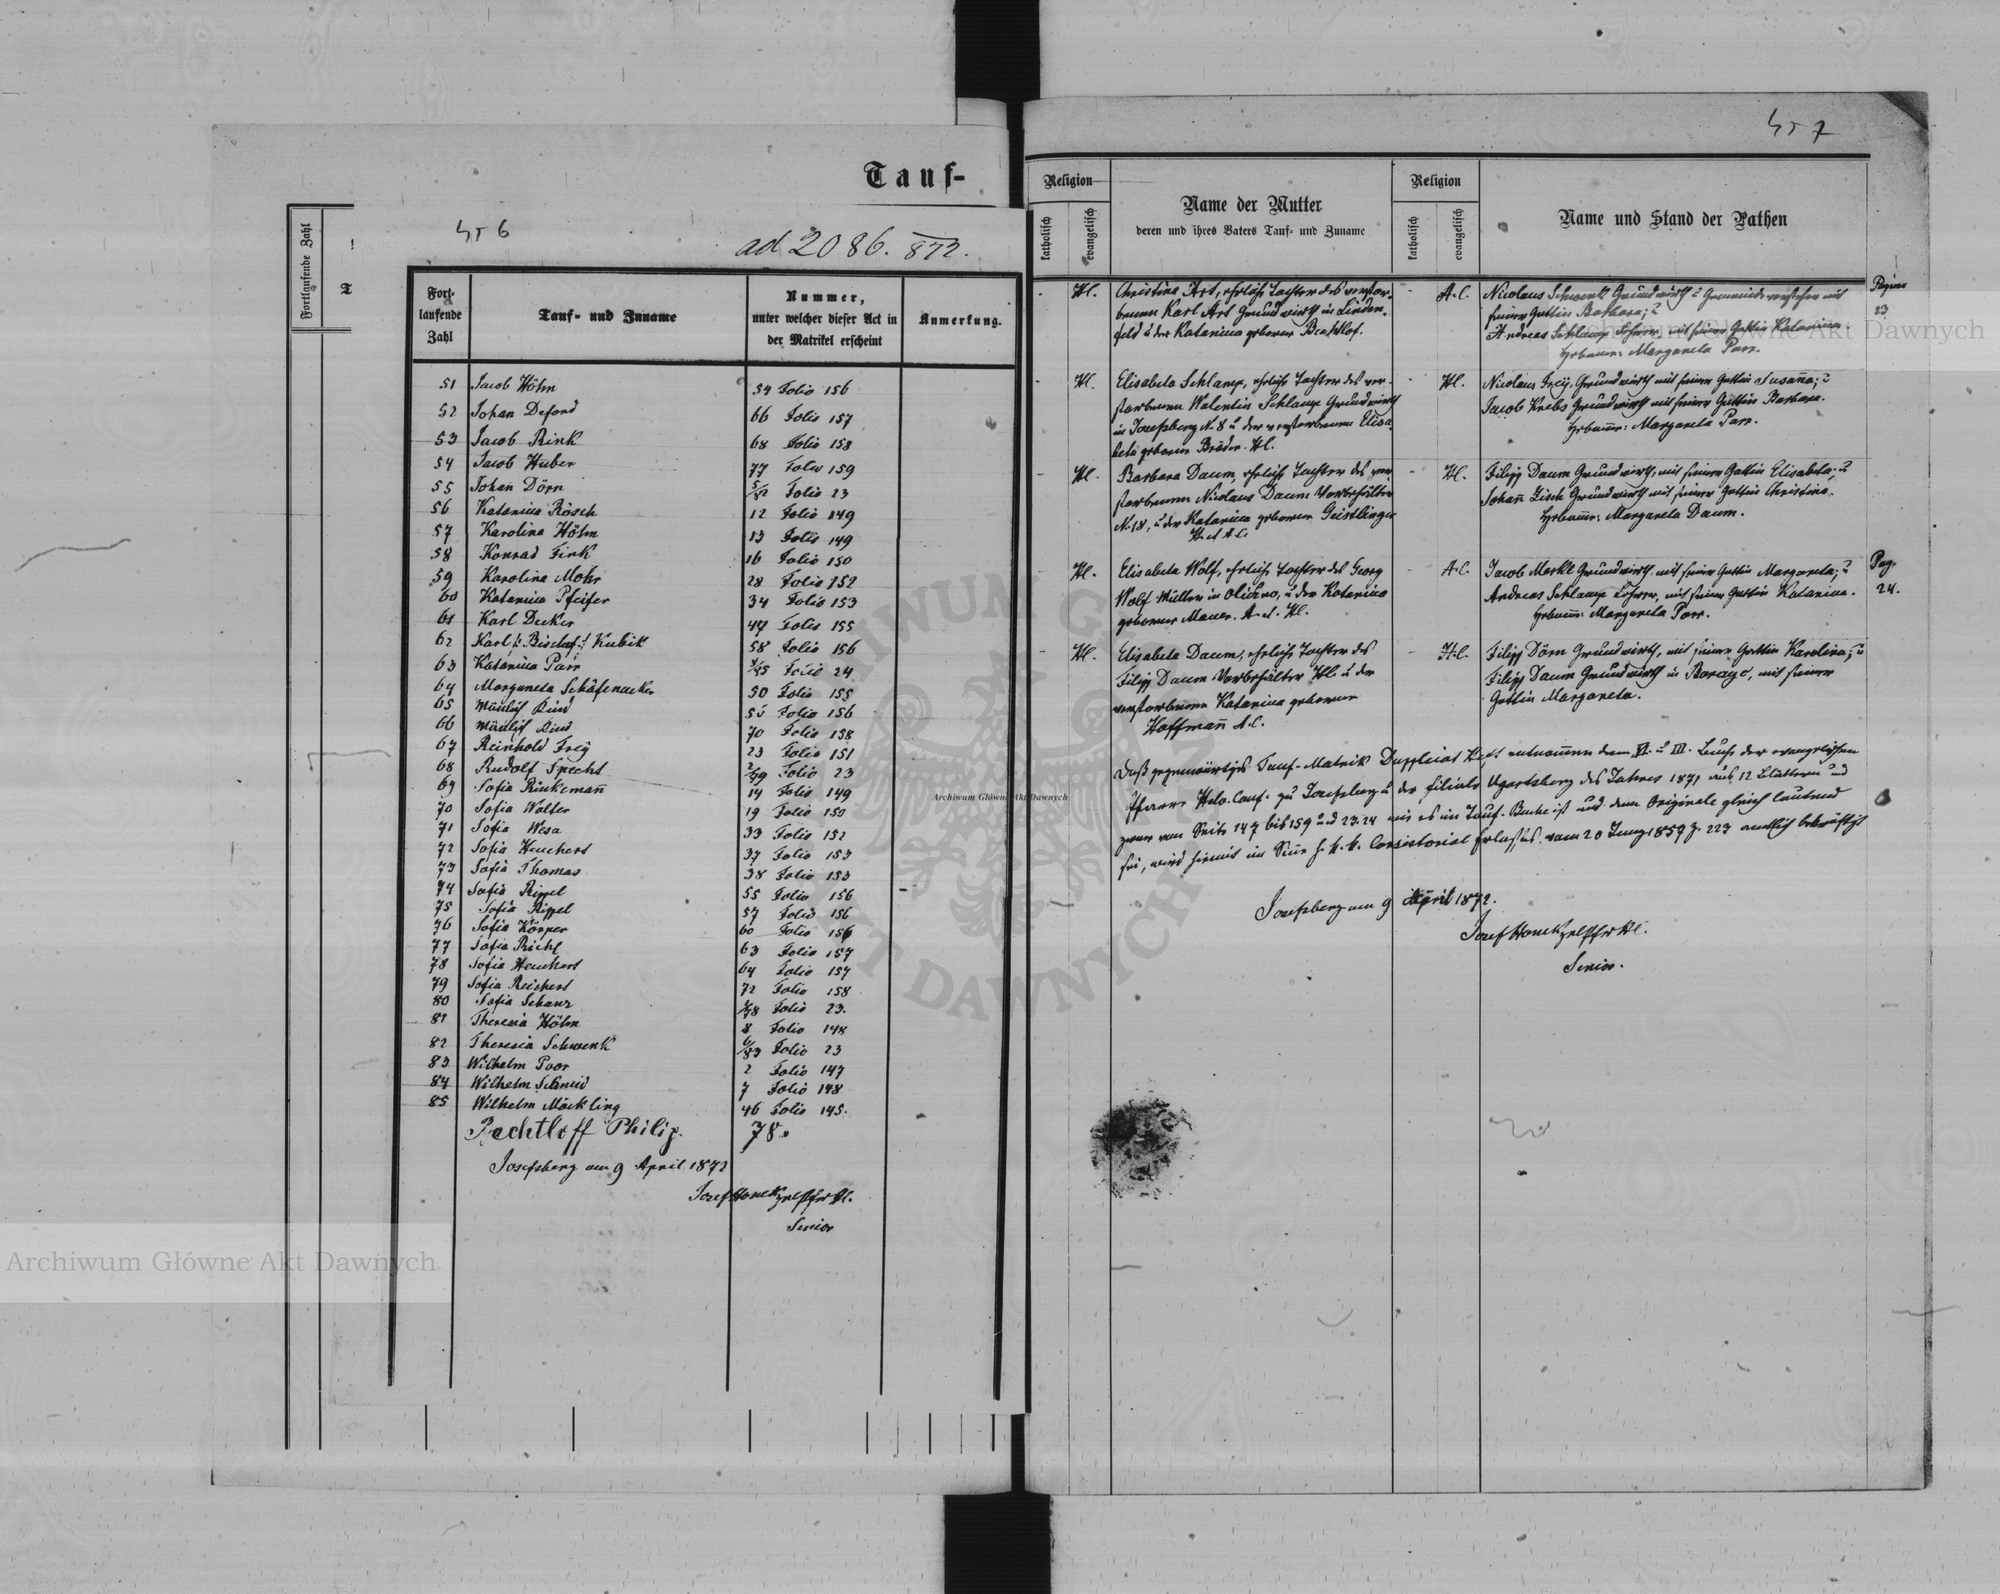 Tauf-
Fortlaufende Zahl
T
456
ad 2086. 872.
Fort-
laufende
Zahl
Tauf- und Zuname
Nummer,
unter welcher dieser Act in
der Matrikel erscheint
Anmerkung.
51 Jacob Höhn 54 Folio 156
52 Johan Deford 66 Folio 157
53 Jacob Rink 68 Folio 158
54 Jacob Huber 77 Folio 159
55 Johan Dörn 5/82 Folio 23
56 Katarina Rösch 12 Folio 149
57 Karolina Höhn 13 Folio 149
58 Konrad Fink 16 Folio 150
59 Karolina Mohr 28 Folio 152
60 Katarina Pfeifer 34 Folio 153
61 Karl Decker 44 Folio 155
62 Karl /: Bischof :/ Kubik 58 Folio 156
63 Katarina Parr Folio 24
64 Margareta Schäfenacker 50 Folio 155
65 Folio 156
66 70 Folio 158
67 Reinhold Freÿ 23 Folio 151
68 Rudolf Specht 2/79 Folio 23
69 Sofia Rinkemañ 14 Folio 149
70 Sofia Walter 19 Folio 150
71 Sofia Wesa 33 Folio 152
72 Sofia Heuchert 37 Folio 153
73 Sofia Thomas 38 Folio 153
74 Sofia Rippel 55 Folio 156
75 Sofia Rippel 57 Folio 156
76 Sofia Körper 60 Folio 156
77 Sofia Richl 63 Folio 157
78 Sofia Heuchert 64 Folio 157
79 Sofia Reichert 72 Folio 158
80 Sofia Schanz Folio 23.
81 Theresia Höhn 8 Folio 148
82 Theresia Schwenk 6/83 Folio 23
83 Wilhelm Poor 2 Folio 147
84 Wilhelm Schmid 7 Folio 148
85 Wilhelm Möckling 46 Folio 145.
Bechtloff Philip. 78.
Josefsberg am 9 April 1872
Senior
457
Religion
katholisch
evangelisch
Name der Mutter
deren und ihres Vaters Tauf- und Zuname
Religion
katholisch
evangelisch
Name und Stand der Pathen
Pagina
23
Hl.
Christina Art, ehrliche Tochter des verstor-
benen Karl Art Grundwirth in Linden-
feld u der Katarina geborene Bechtlof.
A.C.
Nicolaus Schwenk Grundwirth u Gemeindevorsteher mit
seiner Gattin Barbara; u
Andreas Schlamp Lehrer mit seiner Gattin Katarina.
Hebamme: Margareta Parr.
Hl.
Elisabeta Schlamp, ehrliche Tochter des ver-
storbenen Walentin Schlamp Grundwirth
in Josefsberg N. 8 u der verstorbenen Elisa-
beta geborene Bräder. Hl.
Hl.
Nicolaus Freÿ, Grundwirth mit seiner Gattin Susaña; u
Jacob Krebs Grundwirth mit seiner Gattin Barbara.
Hebamme: Margareta Parr.
Hl.
Barbara Daum, ehrliche Tochter des ver-
storbenen Nicolaus Daum Vorbehälter
N. 18, u der Katarina geborene Geistlinger
Hl. et A.C.
Hl.
Filipp Daum Grundwirth, mit seiner Gattin Elisabeta; u
Johañ Lisch Grundwirth mit seiner Gattin Christina.
Hebamme: Margareta Daum.
Hl.
Elisabeta Wolf, ehrliche Tochter des Georg
Wolf Müller in u der Katarina
geborene Mauer. A. et. Hl.
A.C.
Jacob Markl Grundwirth mit seiner Gattin Margareta; u
Andreas Schlamp Lehrer, mit seiner Gattin Katarina.
Hebamme Margareta Parr.
Pag.
24.
Hl.
Elisabeta Daum, ehrliche Tochter des
Filipp Daum Vorbehälter Hl u der
verstorbenen Katarina geborene
Hoffmañ A.C.
H.C.
Filipp Dörn Grundwirth, mit seiner Gattin Karolina; u
Filipp Daum Grundwirth in mit seiner
Gattin Margareta.
Daß gegenwärtiges Tauf-Matrik Duplicat Heft entnommen dem VI. u III. Buche der evangelischen
Pfarre Helv. Conf. zu Josefsberg u der Filiale Ugartsberg des Jahres 1871 aus 12 Blättern und
zwar von Seite 147 bis 159 und 23. 24 wie es im Tauf-Buche ist und dem Originale gleich lautend
sei, wird hiemit im Siñe h. k. k. Consistorial Erlasses vom 20 1857 Z. 223 amtlich bekräftigt
Josefsberg am 9 April 1872.
Senior.
Archiwum Główne Akt Dawnych
Archiwum Główne Akt Dawnych
Archiwum Główne Akt Dawnych